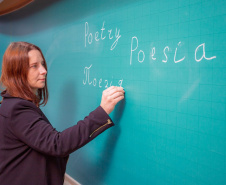 Poetry
Poesia
Поез